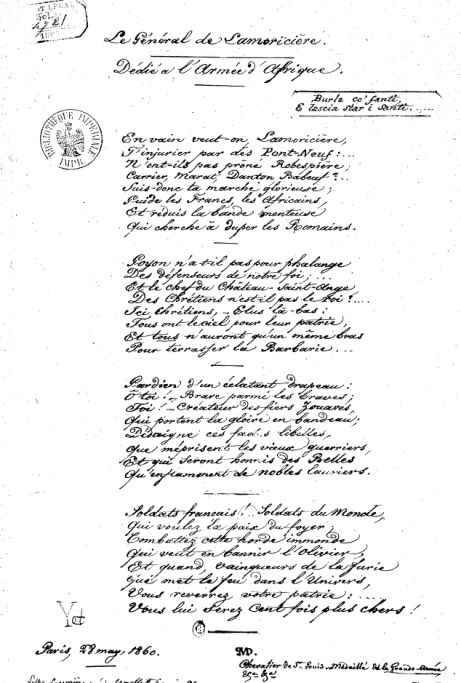 Le Général de Lamoricière.
Dédié a l'Armée d'Afrique.
Burla co' fanti
E lascia star i Santi......
BIBLIOTHÈQUE IMPÉRIALE
IMPR.
En vain veut-on Lamoricière,
T'injurier par des Pont-Neuf :...
N'ont-ils pas prôné Robespierre,
Carrier, Marat, Danton Babeuf ?..
Suis-donc ta marche glorieuse ;
Guide les Francs, les Africains,
Et réduis la bande menteuse
Qui cherche à duper les Romains.
Goyon n'a-t-il pas pour phalange
Des défenseurs de notre foi ;...
Et le chef du Château-Saint-Ange
Des Chrétiens n'est il pas le Roi ?...
Ici Chrétiens, _ Elus là-bas :
Tous ont le ciel pour leur patrie,
Et tous n'auront qu'un même bras
Pour terrasser la Barbarie...
Gardien d'un éclatant drapeau :
Ô toi ! _ Brave parmi les Braves ;
Toi ! _ Créateur des fiers Zouaves,
Qui portent la gloire en bandeau ;
Dédaigne ces libelles,
Que méprisent les vieux guerriers,
Et qui seront honnis des Belles
Qu'enflamment de nobles lauriers.
Soldats français ! Soldats du Monde,
Qui voulez la paix du foyer ;
Combattez cette horde immonde
Qui veut en bannir l'Olivier,
Et quand, vainqueurs de la furie
Qui met le feu dans l'Univers,
Vous reverrez votre patrie :...
Vous lui serez Cent fois plus chers !
Paris, 28 may, 1860.
MD.
Chevalier de St. Louis _ Médaillé de la Grande Armée